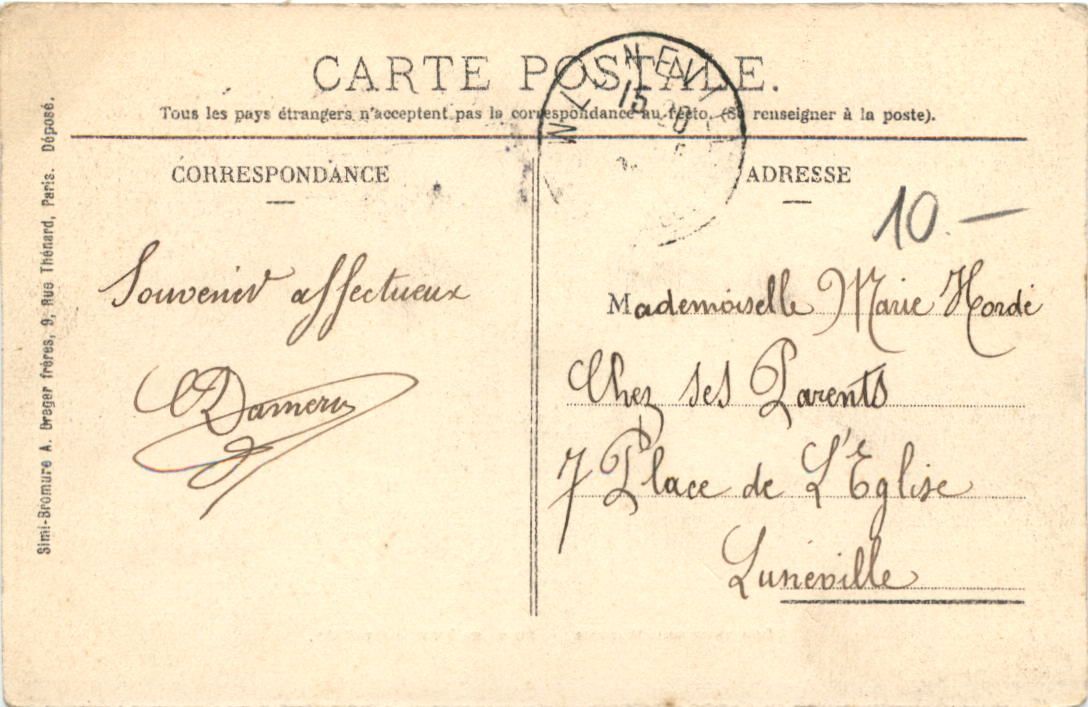 CARTE POSTALE.
Tous les pays étrangers n'acceptent pas la correspondance au recto. (Se renseigner à la poste).
CORRESPONDANCE
Souvenir affectueux
ADRESSE
10.—
Mademoiselle Marie Hordé
Chez ses Parents
7 Place de L'Eglise
Lunéville
Simi-Bromure A. Breger frères, 9, Rue Thénard, Paris. Déposé.